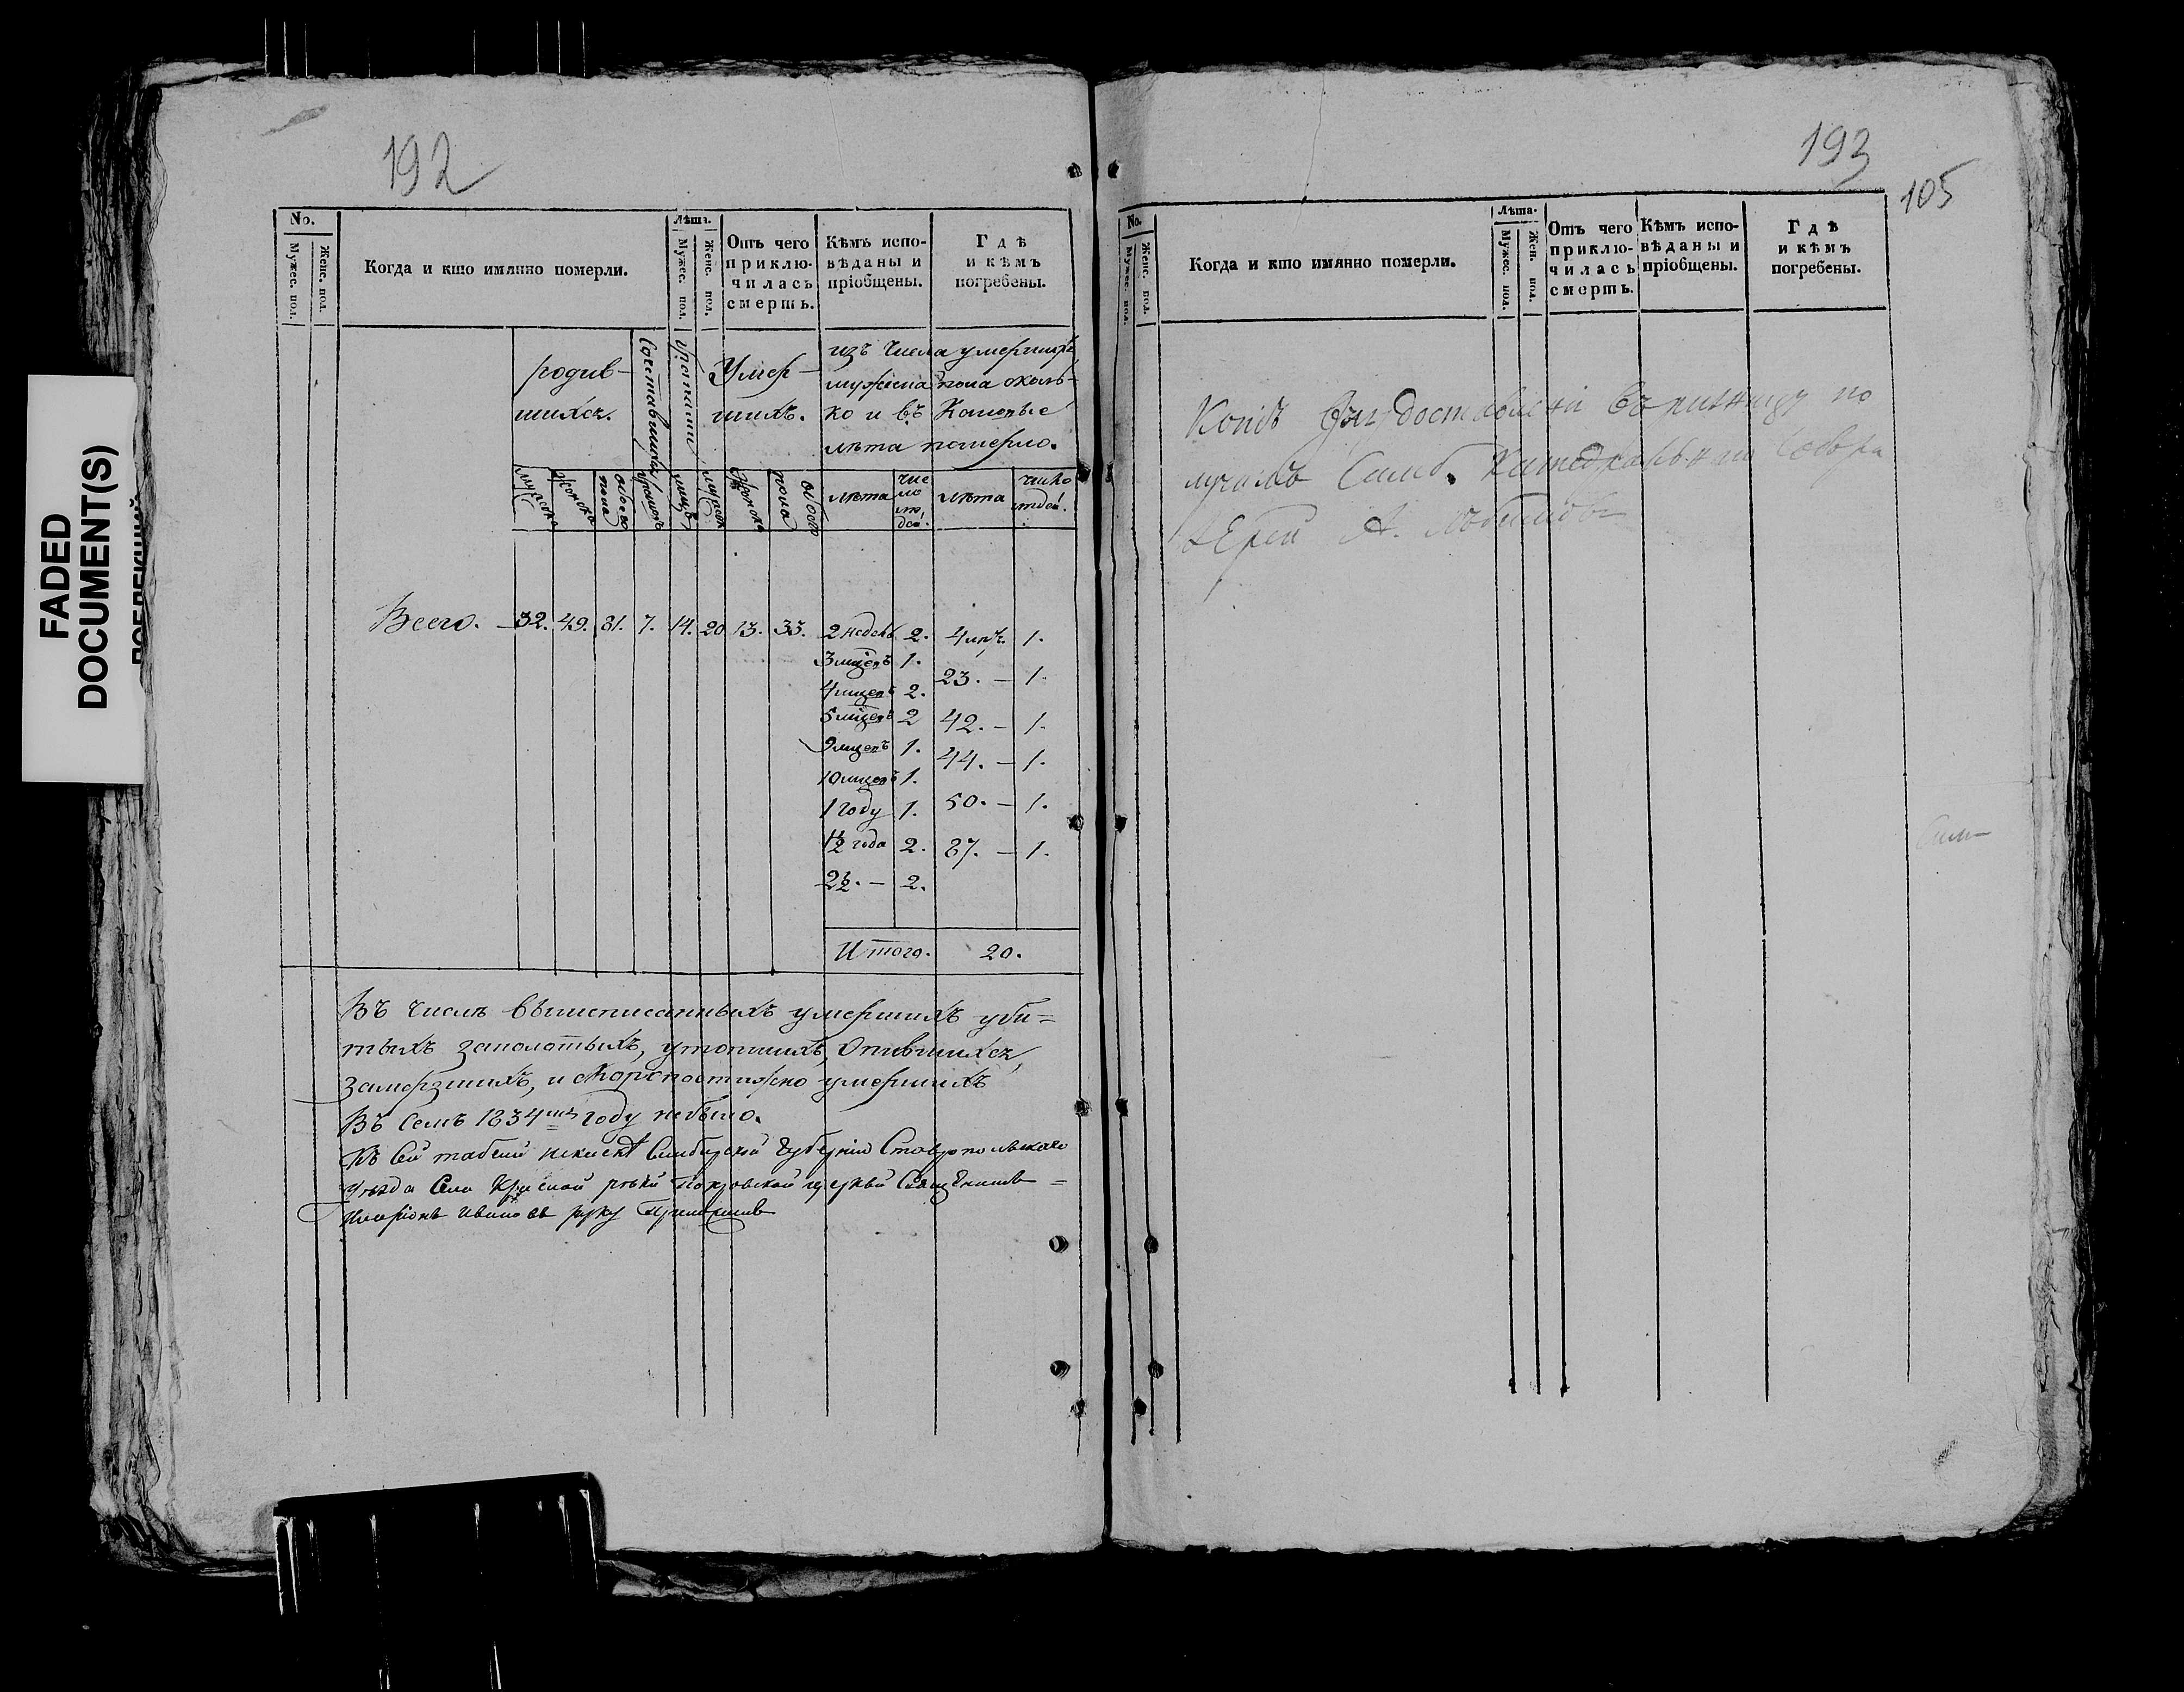 FADED
DOCUMENT(S)
192
No.
Мужес. пол.
Женс. пол.
Когда и кто имянно померли.
Лѣта.
Мужес. пол.
Женс. пол.
Отъ чего
приклю-
чилась
смерть.
Кѣмъ испо-
вѣданы и
пріобщены.
Гдѣ
и кѣмъ
погребены.
родив-
шихся.
Умер-
шихъ.
изъ числа умершихъ
мужеска пола сколь-
ко и въ Каковые
лѣта померло.
лѣта
чис
ло
лю
дей.
лѣта
число
людей.
Всего. — 32. 49. 81. 7. 14. 20 13. 33.
2 недель 2. 4 1.
3 мцовъ 1.
23. — 1.
4 мцовъ 2.
5 мцовъ 2 42. — 1.
9 мцовъ 1.
44. — 1.
10 мцовъ 1.
1 году 1. 50. — 1.
1½ года 2. 87. — 1.
2½. — 2.
Итого. 20.
Въ числѣ вышеписанныхъ умершихъ уби=
тыхъ заколотыхъ, утопшихъ, Опившихся,
Замерзшихъ, и скоропостижно умершихъ
Въ семъ 1834мъ году небыло.
Къ сей табели Симбирской Губерніи Ставропольскаго
уѣзда Села Красной рѣки Покровской церкви Священникъ =
Ивановъ руку Приложилъ
193
105
No.
Мужес. пол.
Женс. пол.
Когда и кто имянно померли.
Лѣта.
Мужес. пол.
Жен. пол.
Отъ чего
приклю-
чилась
смерть.
Кѣмъ испо-
вѣданы и
пріобщены.
Гдѣ
и кѣмъ
погребены.
Симб. Катедральнаго Собора
Іерей А.